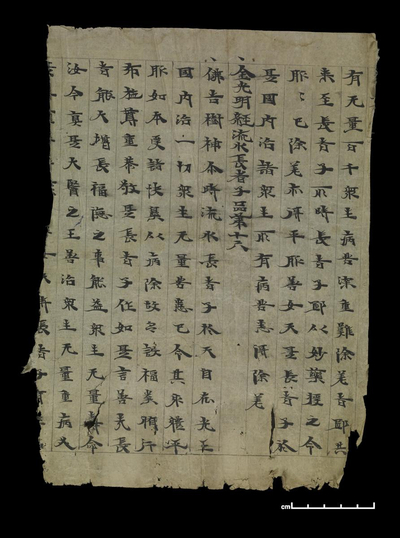 有无量百千衆生病苦深重難除差者即共
來至長者子所時長者子即以妙藥授之令
服〻已除差亦得平服善女天是長者子於
是國內治諸衆生所有病苦悉得除差
金光明經流水長者子品第十六
佛告樹神尒時流水長者子於天自在光王
國內治一切衆生无量苦患已令其身體平
服如本受諸快樂以病除故多設福業脩行
布施尊重恭敬是長者子作如是言善哉長
者能大增長福德之事能益衆生无量壽命
汝今真是大醫之王善治衆生无量重病必
天時長者子有
cm